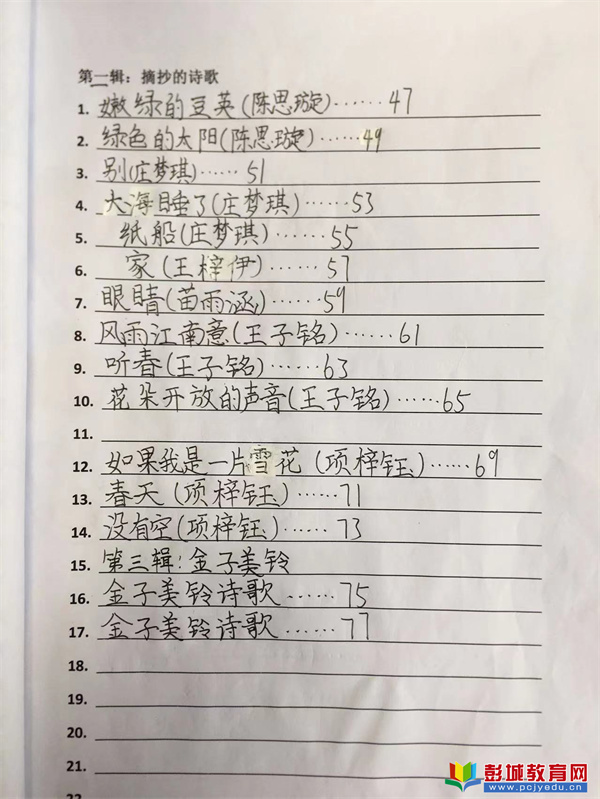 第一辑：摘抄的诗歌
1. 嫩绿的豆英(陈思璇)……47
2. 绿色的太阳(陈思璇)……49
3. 别(庄梦琪)……51
4. 大海睡了(庄梦琪)……53
5. 纸船(庄梦琪)……55
6. 家(王梓伊)……57
7. 眼睛(苗雨涵)……59
8. 风雨江南意(王子铭)……61
9. 听春(王子铭)……63
10. 花朵开放的声音(王子铭)……65
11.
12. 如果我是一片雪花(项梓钰)……69
13. 春天(项梓钰)……71
14. 没有空(项梓钰)……73
15. 第三辑:金子美铃
16. 金子美铃诗歌……75
17. 金子美铃诗歌……77
18.
19.
20.
21.
22
彭城教育网
www.pcjyedu.cn